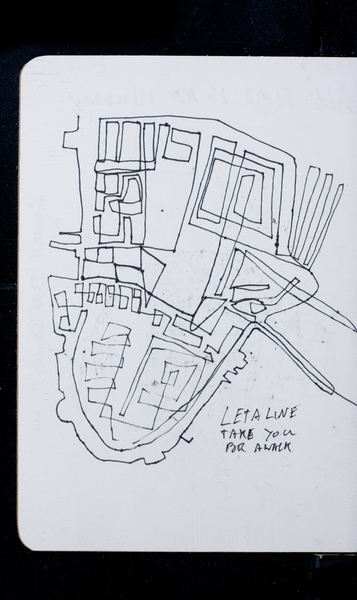 LET A LINE
TAKE YOU
FOR A WALK